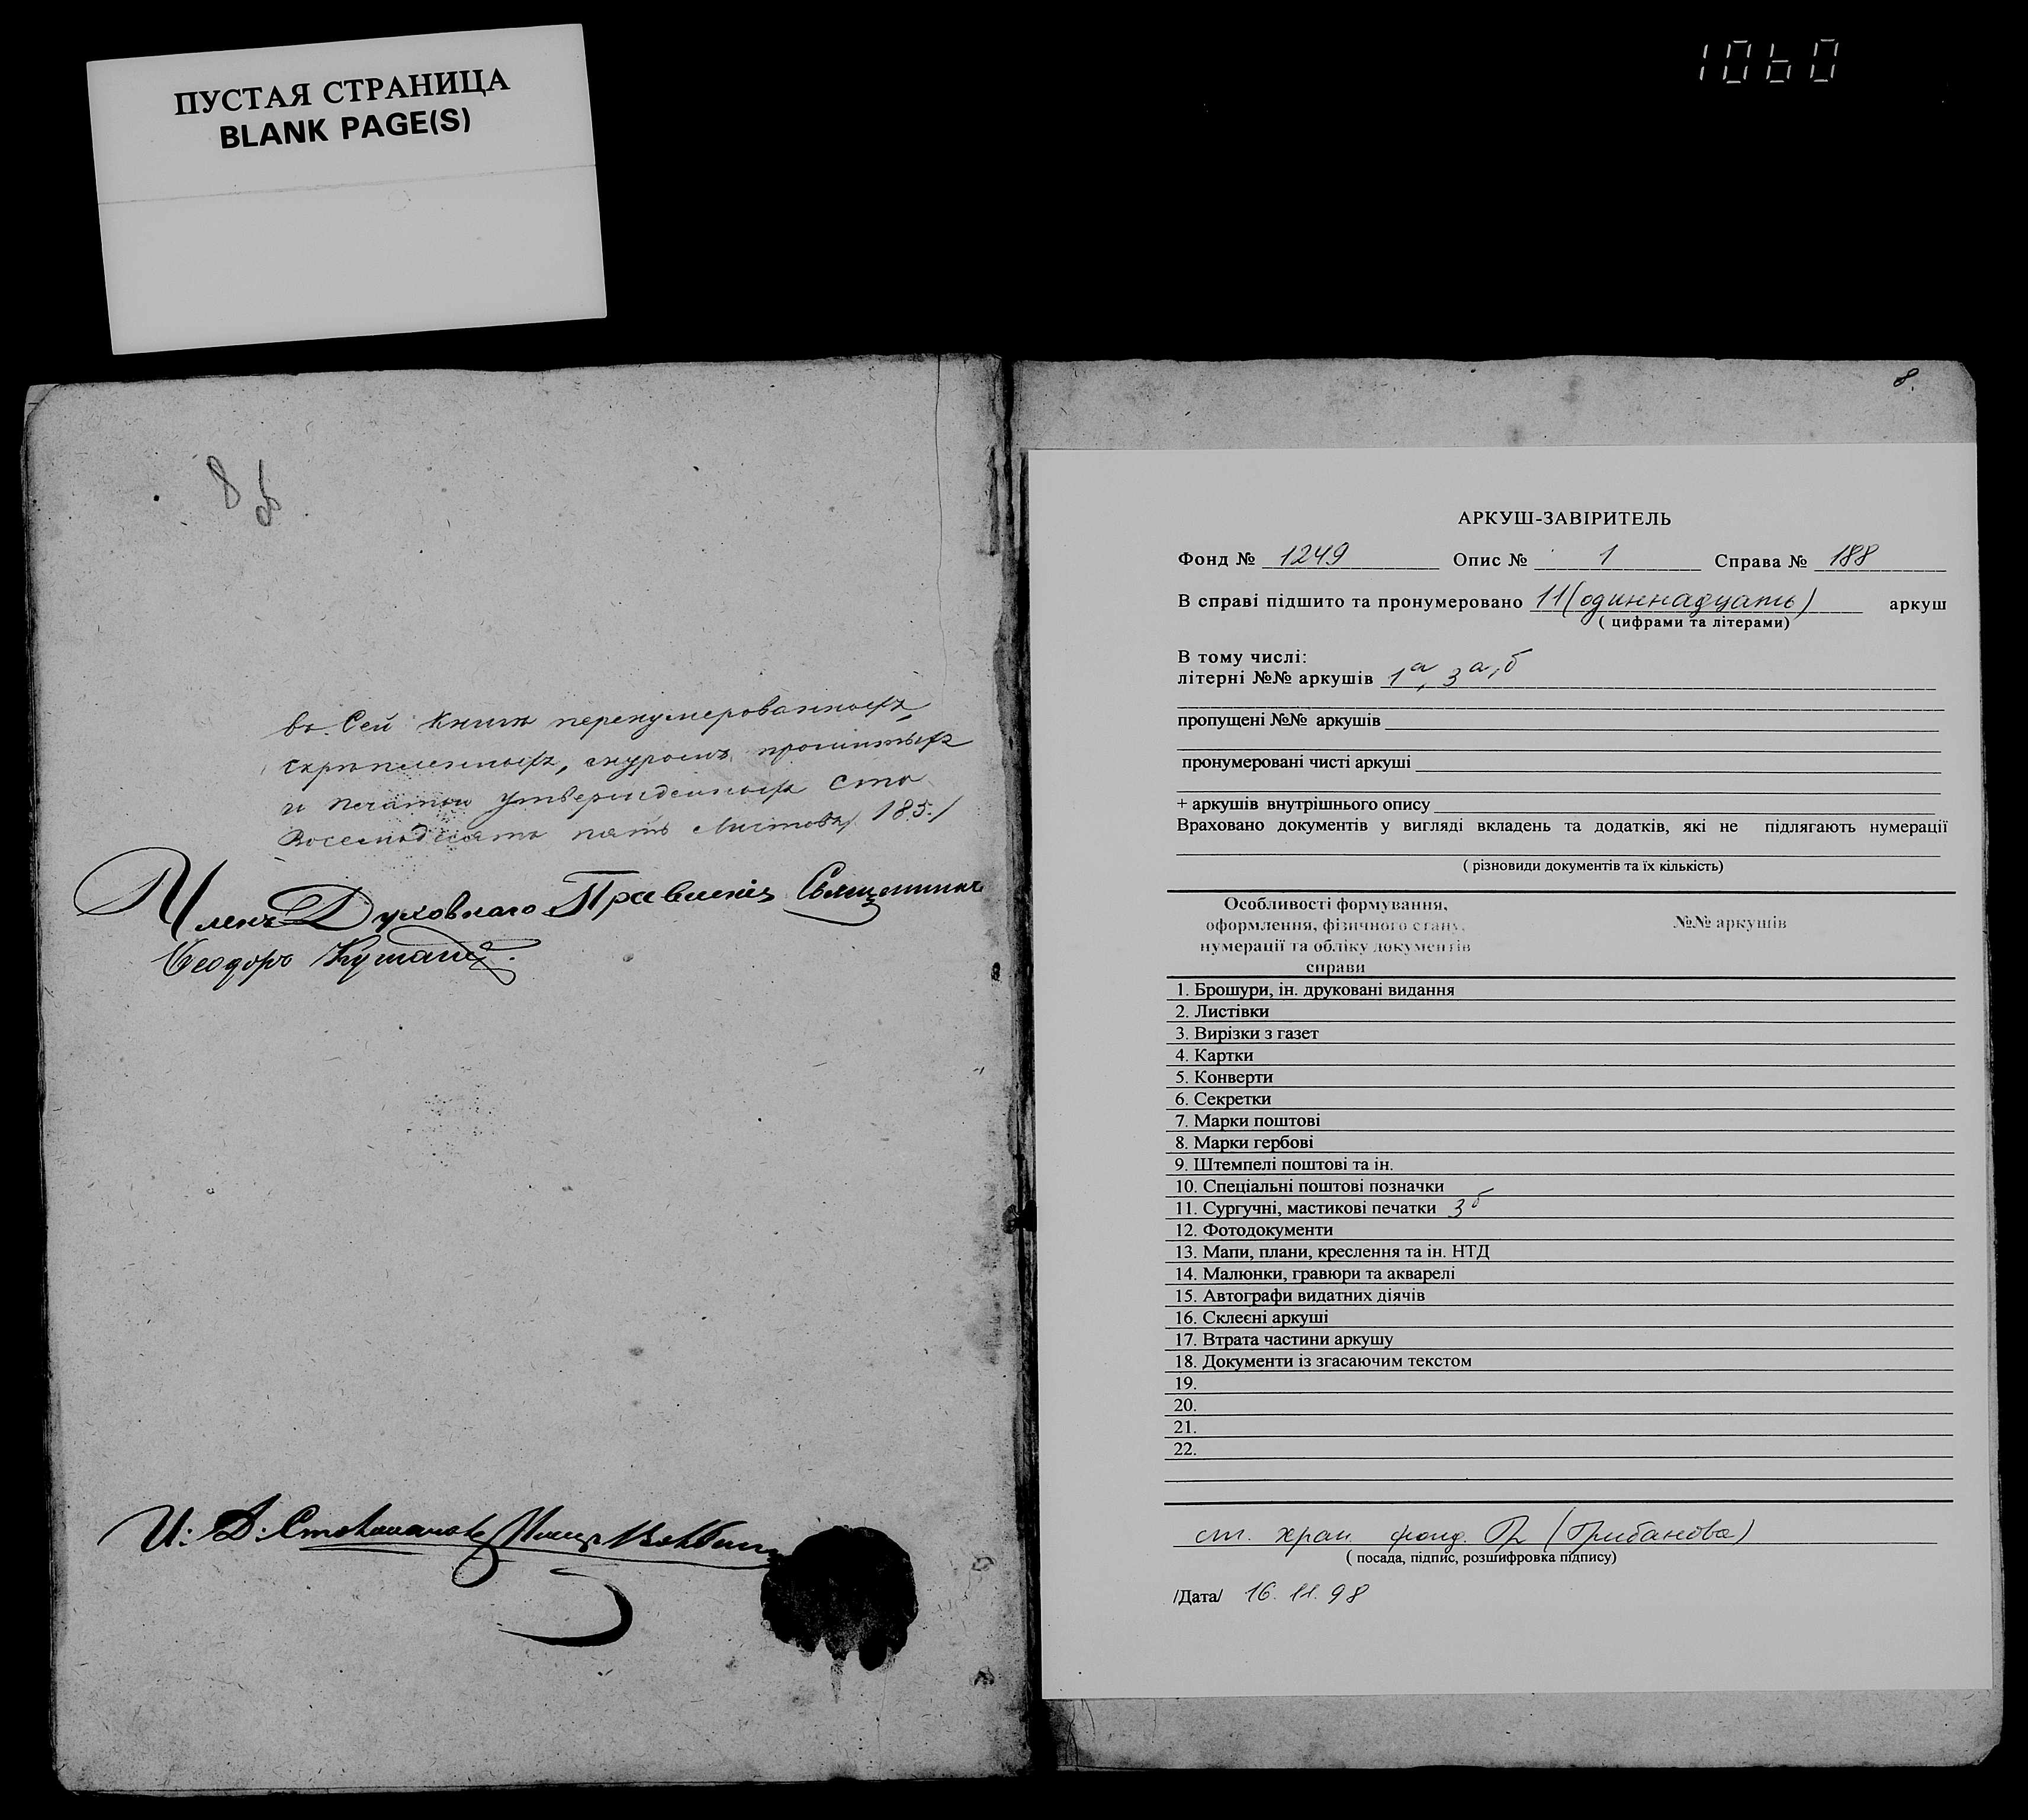 ПУСТАЯ СТРАНИЦА
BLANK PAGE(S)
1060
8
въ Сей Книгѣ перенумерованныхъ,
скрѣпленныхъ, шнуромъ прошитыхъ
и печатью утвержденныхъ сто
Восемьдесятъ пять Листовъ / 185. /
Членъ Духовнаго Правленія Священникъ
Ѳеодоръ
И: Д:
8.
АРКУШ-ЗАВІРИТЕЛЬ
Фонд № 1249 Опис № 1 Справа № 188
В справі підшито та пронумеровано 11 (одиннадцать) аркуш
( цифрами та літерами)
В тому числі:
літерні №№ аркушів 1а, 3а,б
пропущені №№ аркушів
пронумеровані чисті аркуші
+ аркушів внутрішнього опису
Враховано документів у вигляді вкладень та додатків, які не підлягають нумерації
( різновиди документів та їх кількість)
Особливості формування, №№ аркушів
оформлення, фізичного стану,
нумерації та обліку документів
справи
1. Брошури, ін. друковані видання
2. Листівки
3. Вирізки з газет
4. Картки
5. Конверти
6. Секретки
7. Марки поштові
8. Марки гербові
9. Штемпелі поштові та ін.
10. Спеціальні поштові позначки
11. Сургучні, мастикові печатки 3б
12. Фотодокументи
13. Мапи, плани, креслення та ін. НТД
14. Малюнки, гравюри та акварелі
15. Автографи видатних діячів
16. Склеєні аркуші
17. Втрата частини аркушу
18. Документи із згасаючим текстом
19.
20.
21.
22.
ст. хран. фонд. (Грибанова)
( посада, підпис, розшифровка підпису)
/Дата/ 16. 11. 98